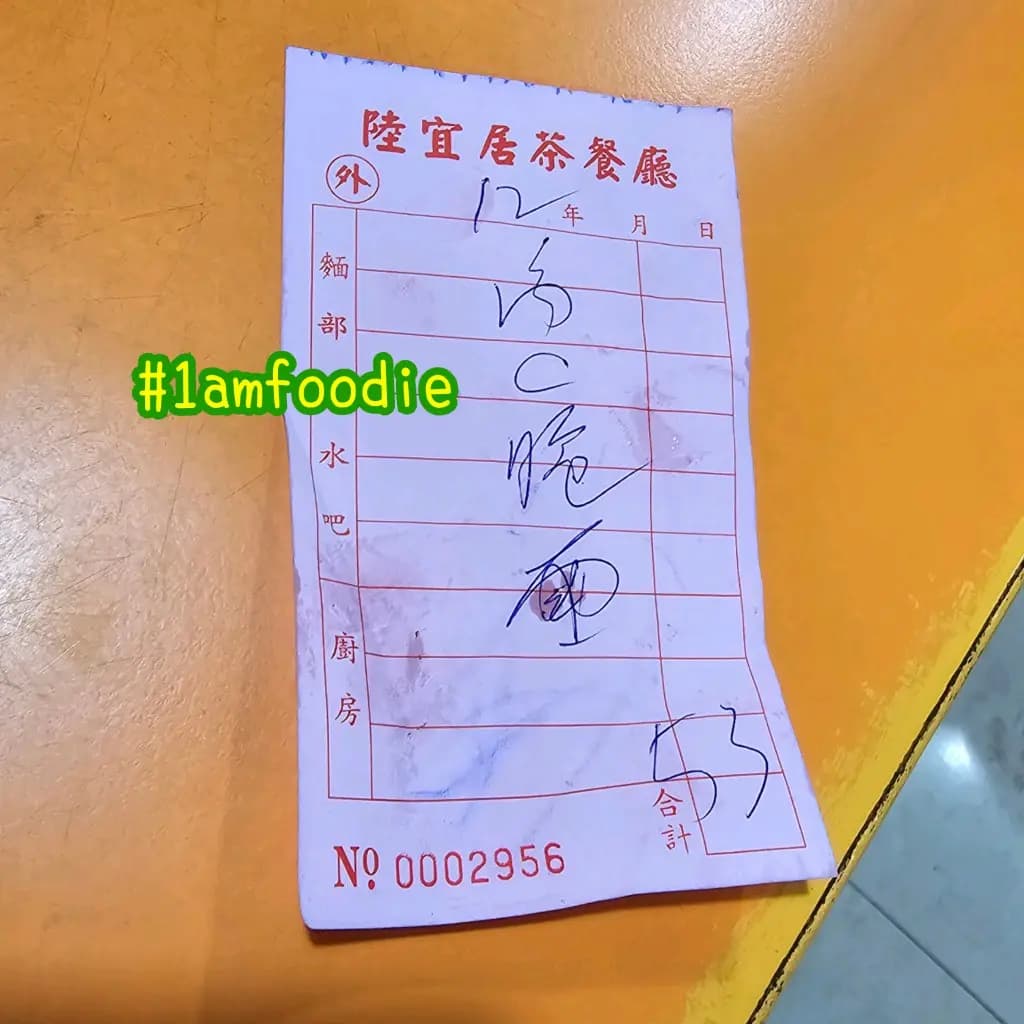 陸宜居茶餐廳
外
12 年 月 日
麵部
水吧
廚房
#1amfoodie
C
53
合計
Nº 0002956